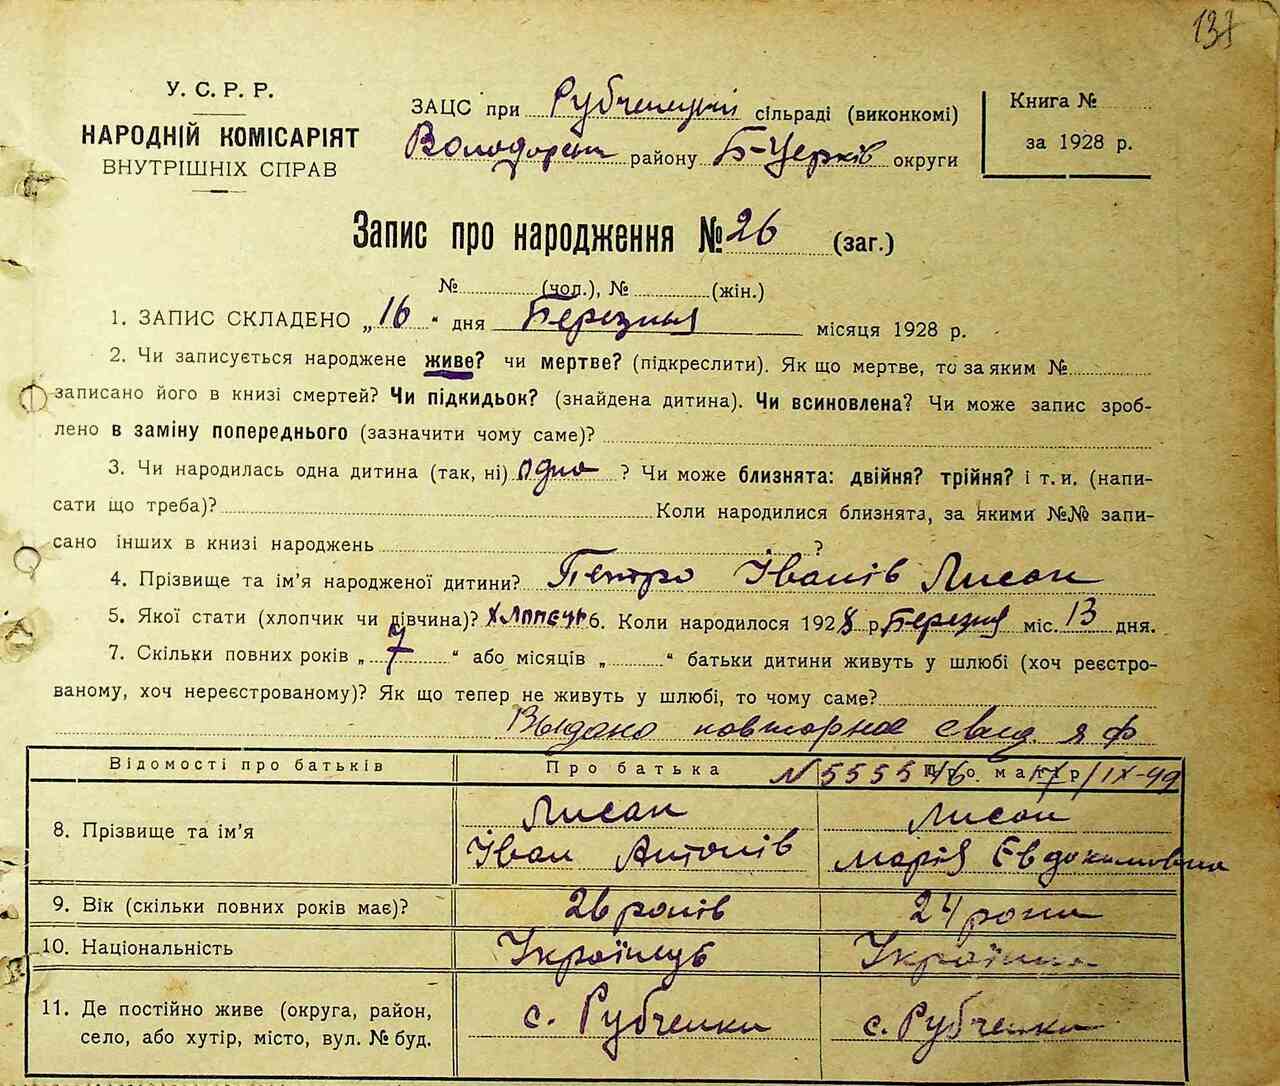 137
У. С. Р. Р.
НАРОДНІЙ КОМІСАРІЯТ
ВНУТРІШНІХ СПРАВ
ЗАЦС при Рубченецкій сільраді (виконкомі)
Володарськ району Б-Церків округи
Книга №
за 1928 р.
Запис про народження № 26 (заг.)
№ (чол.), № (жін.)
1. ЗАПИС СКЛАДЕНО „16“ дня Березня місяця 1928 р.
2. Чи записується народжене живе? чи мертве? (підкреслити). Як що мертве, то за яким №
записано його в книзі смертей? Чи підкидьок? (знайдена дитина). Чи всиновлена? Чи може запис зроб-
лено в заміну попереднього (зазначити чому саме)?
3. Чи народилась одна дитина (так, ні) одна ? Чи може близнята: двійня? трійня? і т. и. (напи-
сати що треба)? Коли народилися близнята, за якими №№ запи-
сано інших в книзі народжень ?
4. Прізвище та ім’я народженої дитини? Петро Іванів Лисак
5. Якої стати (хлопчик чи дівчина)? хлопець 6. Коли народилося 1928 р. Березня міс. 13 дня.
7. Скільки повних років „7“ або місяців „ “ батьки дитини живуть у шлюбі (хоч реєстро-
ваному, хоч нереєстрованому)? Як що тепер не живуть у шлюбі, то чому саме?
Выдано повторное свид я ф
Відомості про батьків Про батька Про матір
N 555546 /IX-49
8. Прізвище та ім’я
Лисак
Іван Антонів
Лисак
Марія Євдокимовна
9. Вік (скільки повних років має)? 26 років 24 роки
10. Національність Українець Українка
11. Де постійно живе (округа, район,
село, або хутір, місто, вул. № буд.
с. Рубченки
с. Рубченки